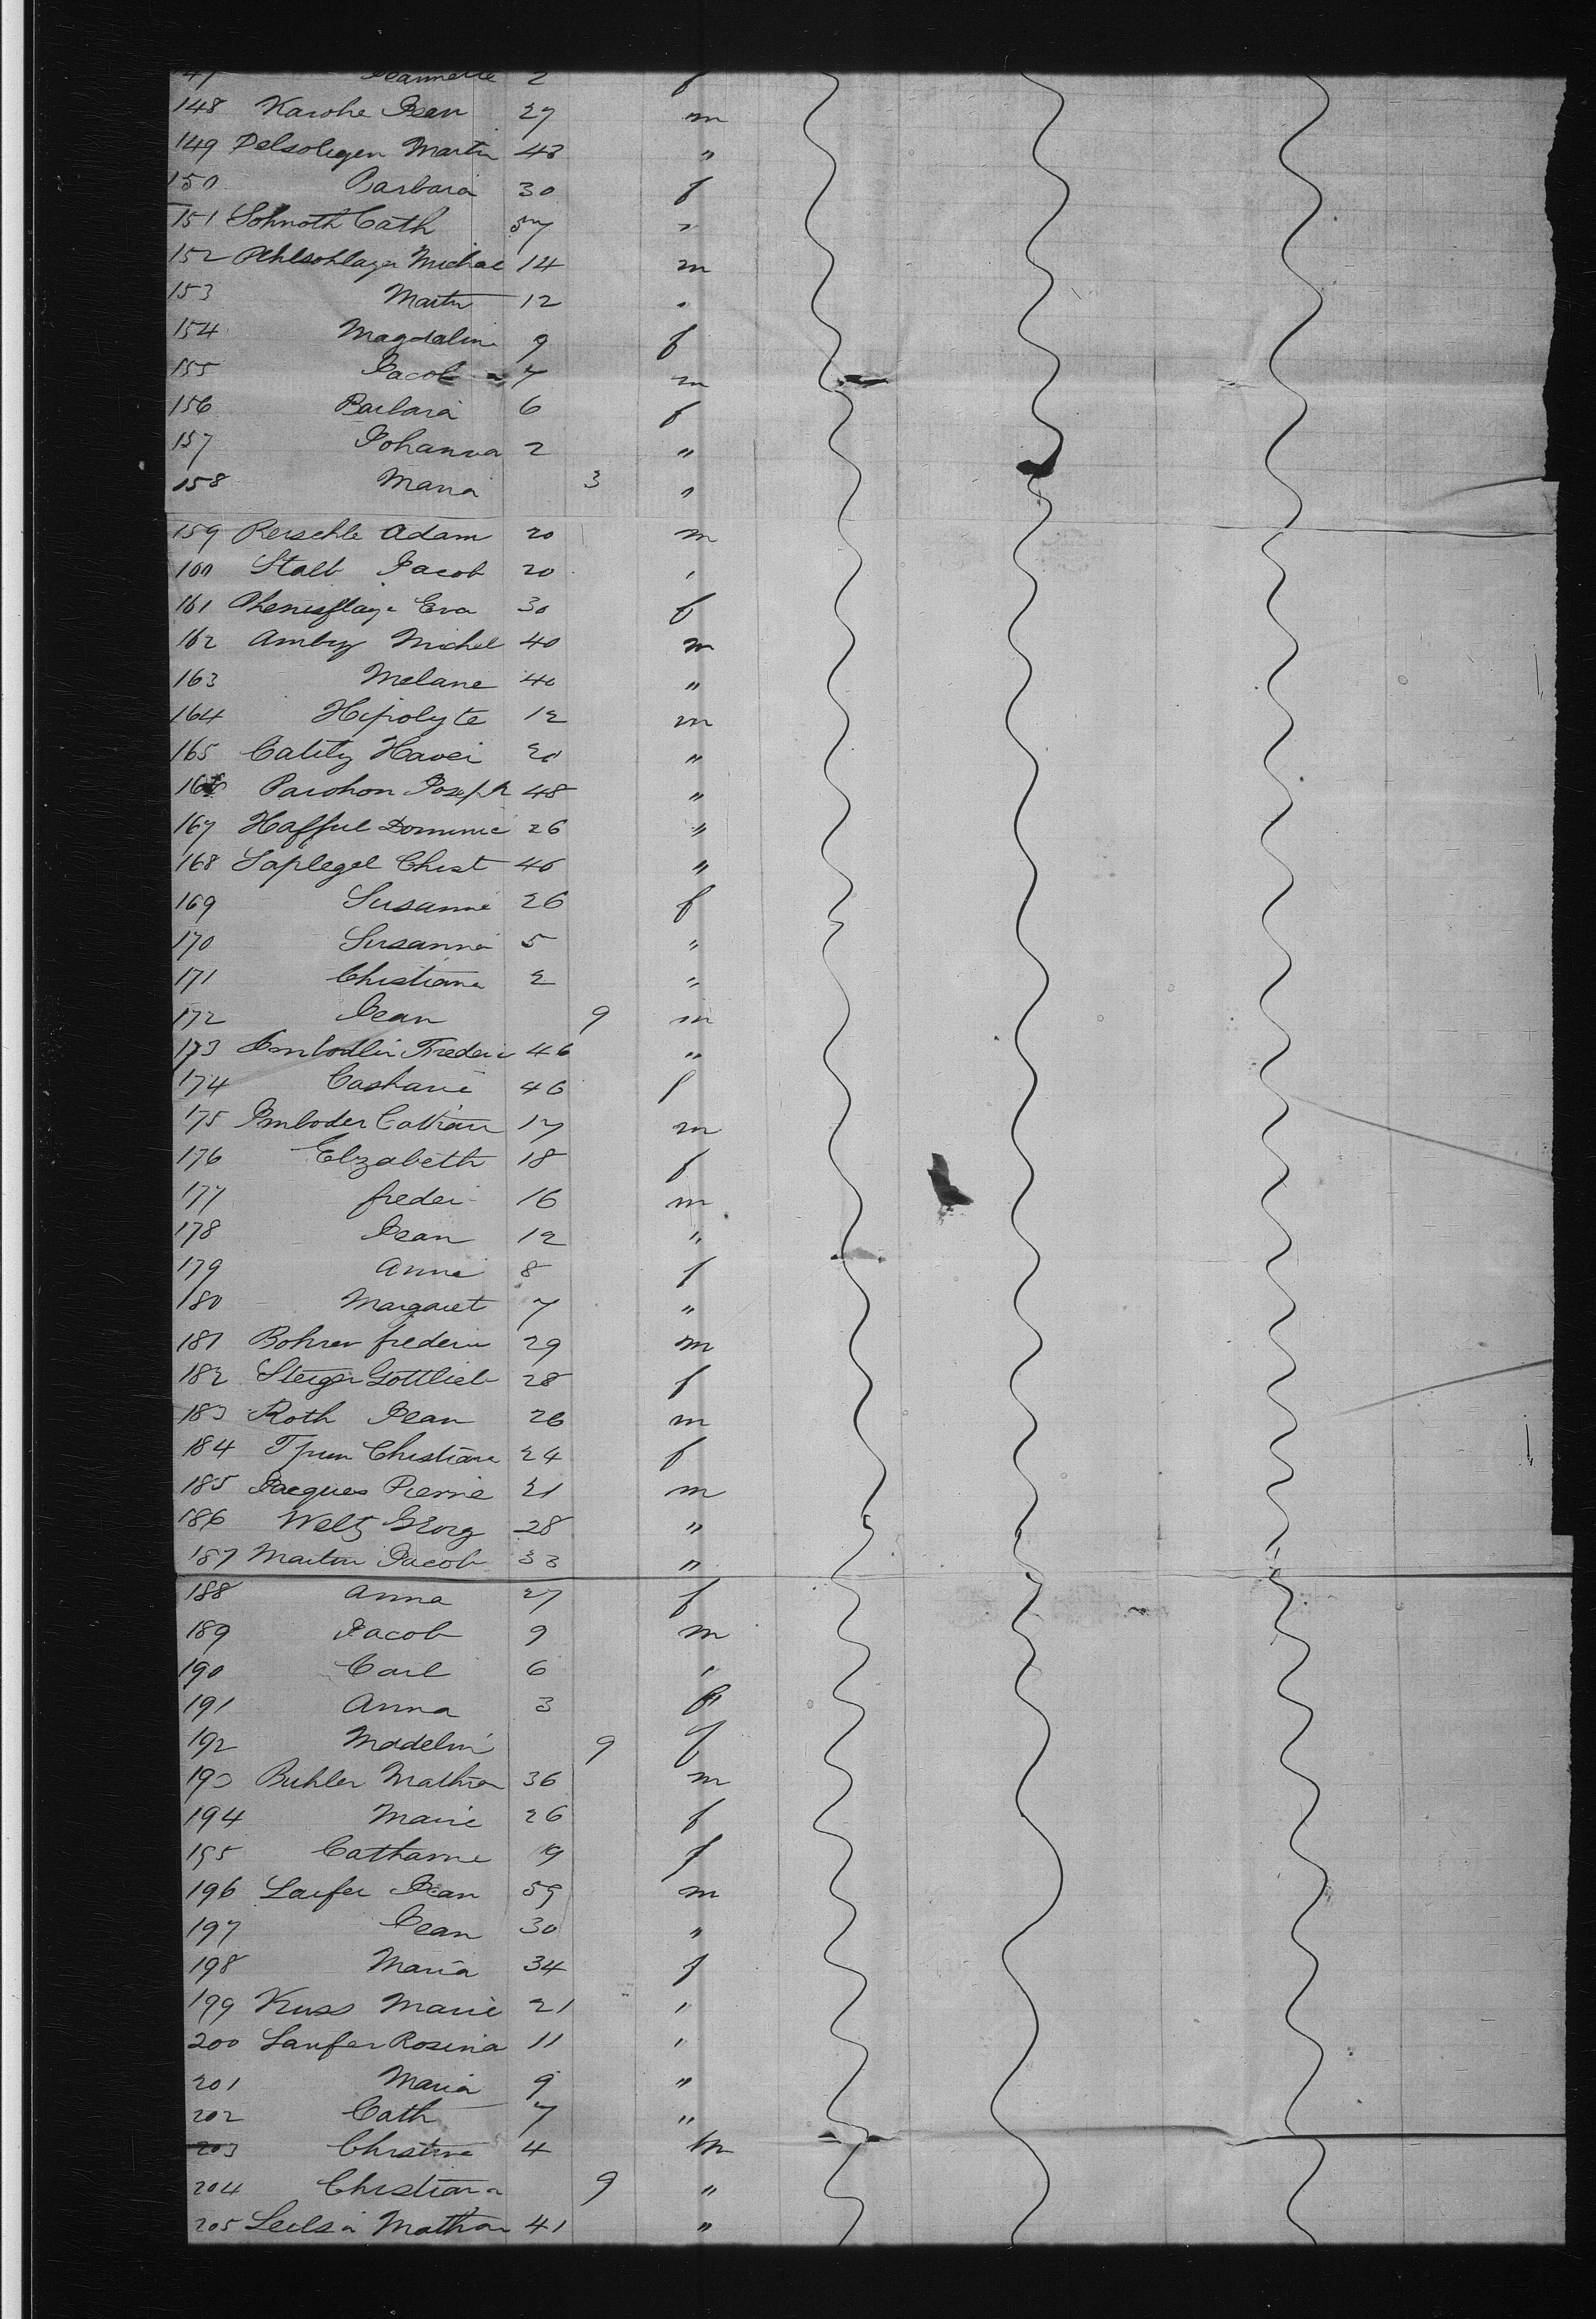 47 Jeannette 2 f
148 Karohe Jean 27 m
149 Pelsolegen Martin 43 "
150 Barbara 30 f
151 Sohnoth Cath 57 "
152 Ahlsohlager Michae 14 m
153 Martin 12 "
154 Magdalina 9 f
155 Jacob 7 m
156 Barbara 6 f
157 Johanna 2 "
158 Maria 3 "
159 Rerschle Adam 20 m
160 Stalb Jacob 20 "
161 Eva 30 f
162 Ambry Michel 40 m
163 Melane 40 "
164 Hipolyte 12 m
165 Catity Haver 20 "
166 Parohon Joseph 48 "
167 Hafful Dominic 26 "
168 Saplegel Christ 46 "
169 Susanna 26 f
170 Susanna 5 "
171 Christiana 2 "
172 Jean 9 m
173 Frederic 46 "
174 Cashari 46 f
175 Imboder Cathari 17 m
176 Elizabeth 18 f
177 freder 16 m
178 Jean 12 "
179 Anna 8 f
180 Margaret 7 "
181 Bohrer frederic 29 m
182 Steiger Gottlieb 28 f
183 Roth Jean 26 m
184 Christiane 24 f
185 Jacques Pierrie 21 m
186 Weltz Georg 28 "
187 Martin Jacob 33 "
188 Anna 27 f
189 Jacob 9 m
190 Carl 6 "
191 Anna 3 f"
192 Madelin 9 f
193 Buhler Mathia 36 m
194 Marie 26 f
195 Catharine 19 f
196 Laufer Jean 59 m
197 Jean 30 "
198 Maria 34 f
199 Kuss Marie 21 "
200 Laufer Rosina 11 "
201 Maria 9 "
202 Cath 7 "
203 Christine 4 m
204 Christiana 9 "
205 Mathia 41 "